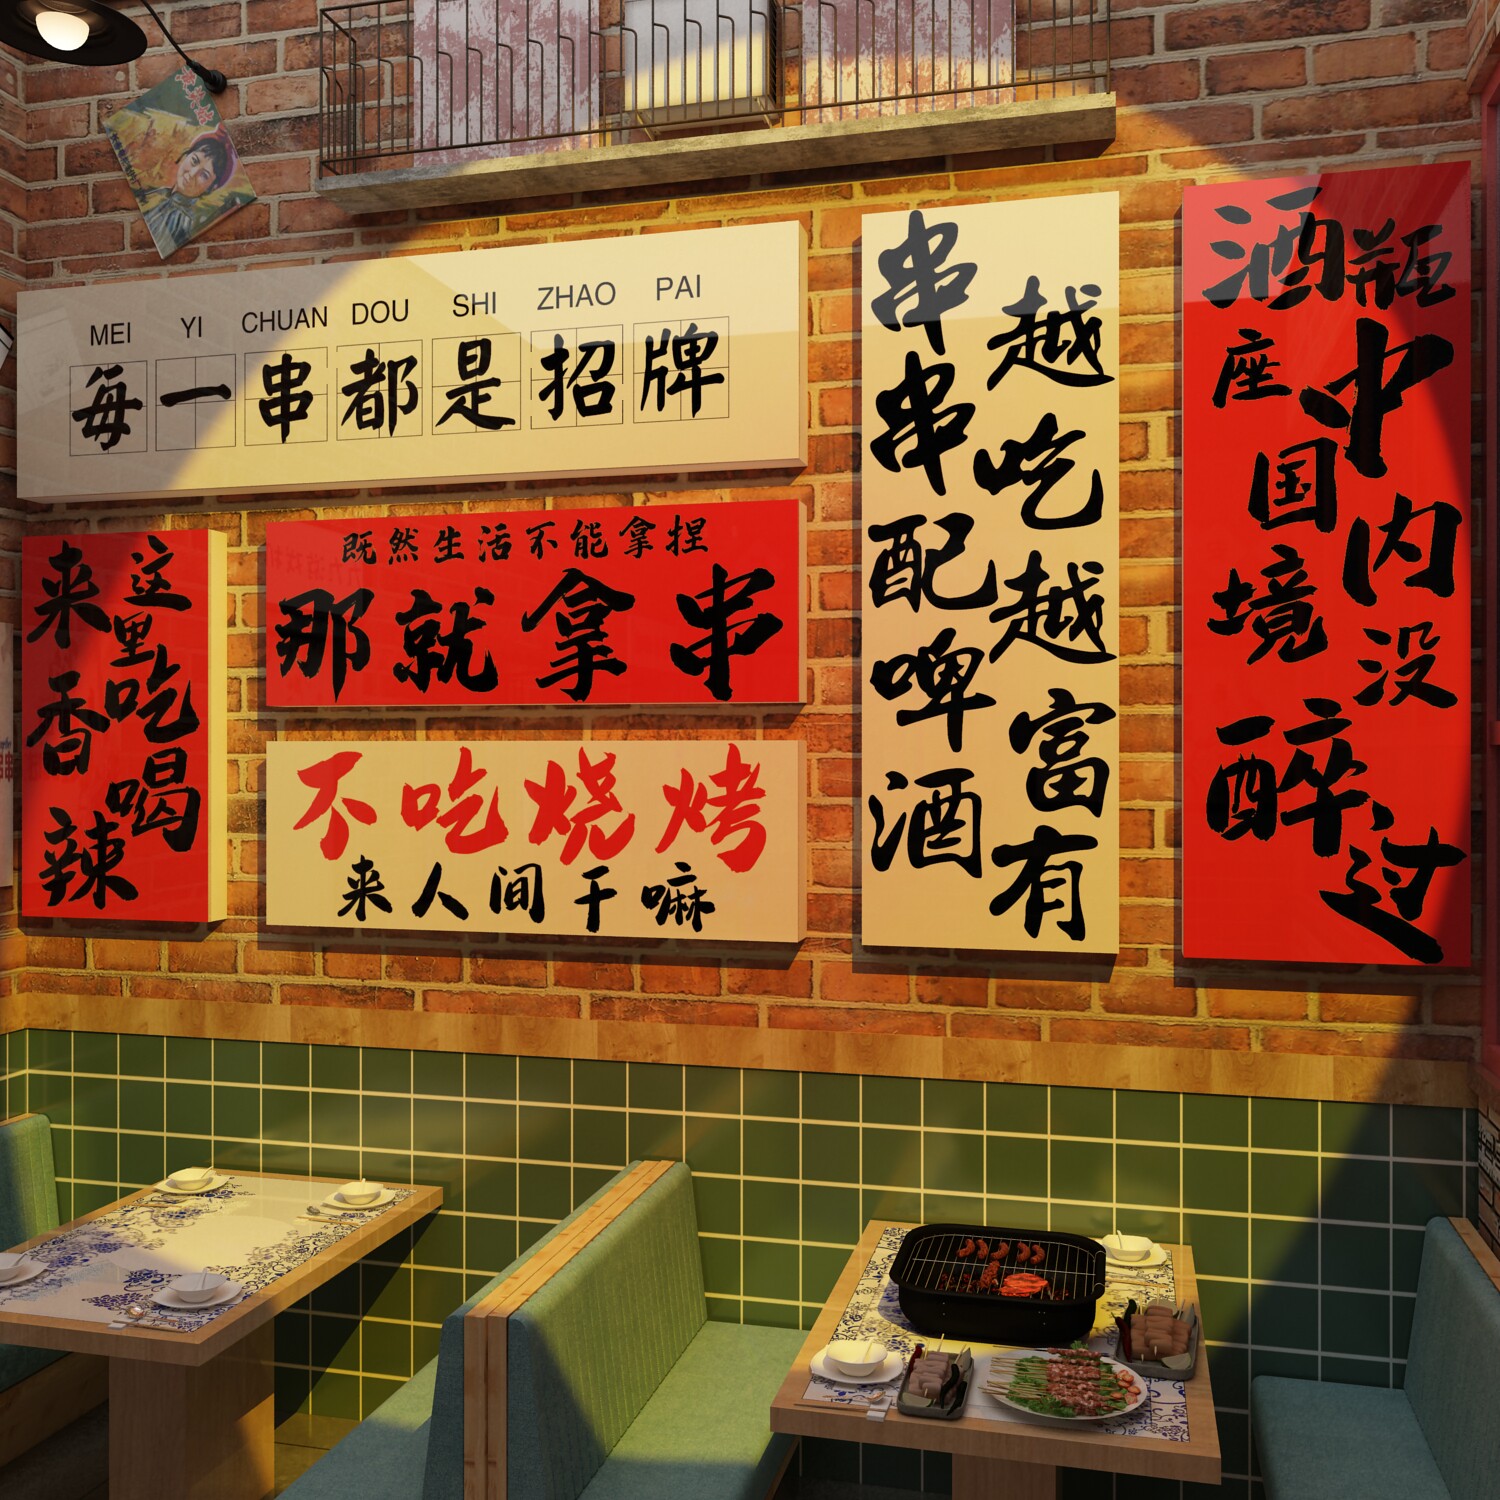 MEI YI CHUAN DOU SHI ZHAO PAI
每一串都是招牌
来香辣
这里吃喝
既然生活不能拿捏
那就拿串
不吃烧烤
来人间干嘛
串串配啤酒
越吃越富有
酒座国境醉
瓶中内没过